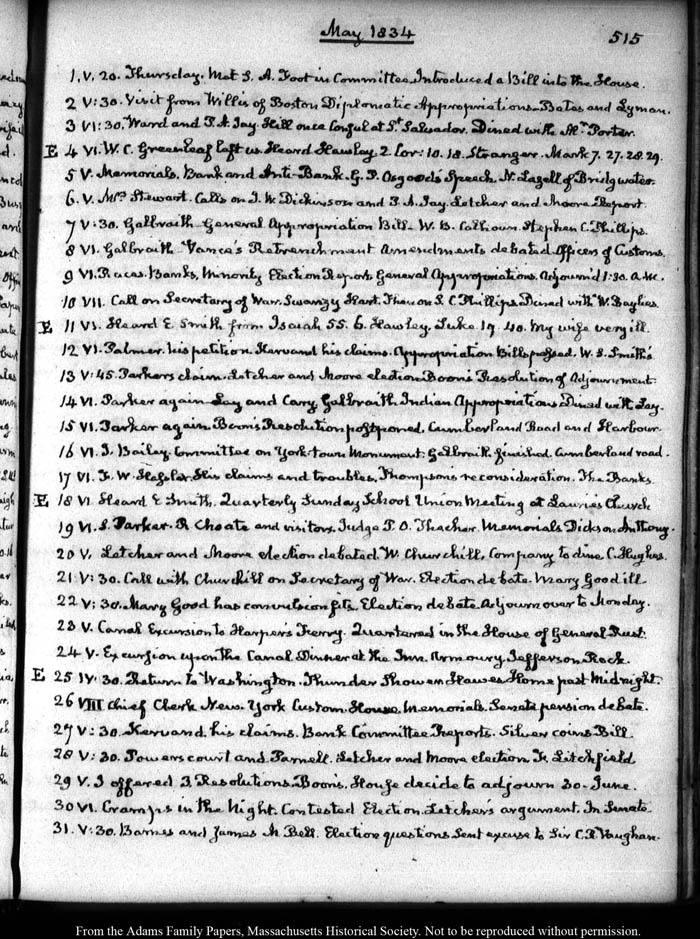 May 1834
515
1. V. 20. Thursday. Met S. A. Foot in Committee. Introduced a Bill into the House.
2 V: 30. Visit from Willis of Boston Diplomatic Appropriations. Bates and Lyman.
3 VI: 30. Ward and P. A. Jay. Hill once Consul at St. Salvador. Dined with Mr. Porter.
E 4 VI. W. C. Greenleaf left us. Heard Hawley. 2 Cor: 10. 18. Stranger. Mark 7. 27. 28. 29.
5 V. Memorials. Bank and Anti-Bank. G. P. Osgood's Speech. N. Lazell of Bridgwater.
6. V. Mrs. Stewart. Calls on J. W. Dickinson and P. A. Jay. Letcher and Moore Report
7 V: 30. Galbraith General Appropriation Bill. W. B. Calhoun. Stephen C. Phillips.
8 VI. Galbraith Vance's Retrenchment amendments debated. Officers of Customs.
9 VI. Races. Banks, Minority Election Report. General Appropriations. Adjourn'd 1:30. A.M.
10 VII. Call on Secretary of War. Swanzy Hart. Then on S. C. Phillips. Dined with W. Baylies.
E 11 VI. Heard E. Smith from Isaiah 55. 6. Hawley. Luke. 19. 40. My wife very ill.
12 VI. Palmer. his petition. Harvand his claims. Appropriation Bills passed. W. S. Smith's
13 V: 45. Parker's claim. Letcher and Moore election. Boon's Resolution of Adjournment.
14 VI. Parker again. Lay and Cary. Galbraith. Indian Appropriations. Dined with Lay.
15 VI. Parker again. Boon's Resolution postponed. Cumberland Road and Harbour.
16 VI. J. Bailey. Committee on York-town Monument. Galbraith finished. Cumberland road.
17 VI. F. W. Hassler. His claims and troubles. Thompson's reconsideration. The Banks.
E 18 VI Heard E Smith. Quarterly Sunday School Union Meeting at Laurie's Church
19 VI. S. Parker. R Choate and visitors. Judge P. O. Thacher. Memorials Dickson Anthony.
20 V. Letcher and Moore election debated. W. Churchill. Company to dine. C. Hughes.
21 V: 30. Call with Churchill on Secretary of War. Election debate. Mary Good ill
22 V: 30. Mary Good has convulsion fits. Election debate. Adjourn over to Monday.
23 V. Canal Excursion to Harper's Ferry. Quartered in the House of General Rust.
24 V. Excursion upon the Canal. Dinner at the Inn. Armoury. Jefferson Rock.
E 25 IV: 30. Return to Washington. Thunder Shower. Hawes Home past Midnight.
26 VIII Chief Clerk New-York Custom-House. Memorials. Senate pension debate.
27 V: 30. Kervand. his claims. Bank Committee Reports. Silver coins Bill
28 V: 30. Powerscourt and Parnell. Letcher and Moore election. F. Litchfield
29 V. I offered 3. Resolutions. Boon's. House decide to adjourn 30. June.
30 VI. Cramps in the Night. Contested Election. Letcher's argument. In Senate
31. V: 30. Barnes and James M Bell. Election questions. Sent excuse to Sir C. R. Vaughan.
From the Adams Family Papers, Massachusetts Historical Society. Not to be reproduced without permission.